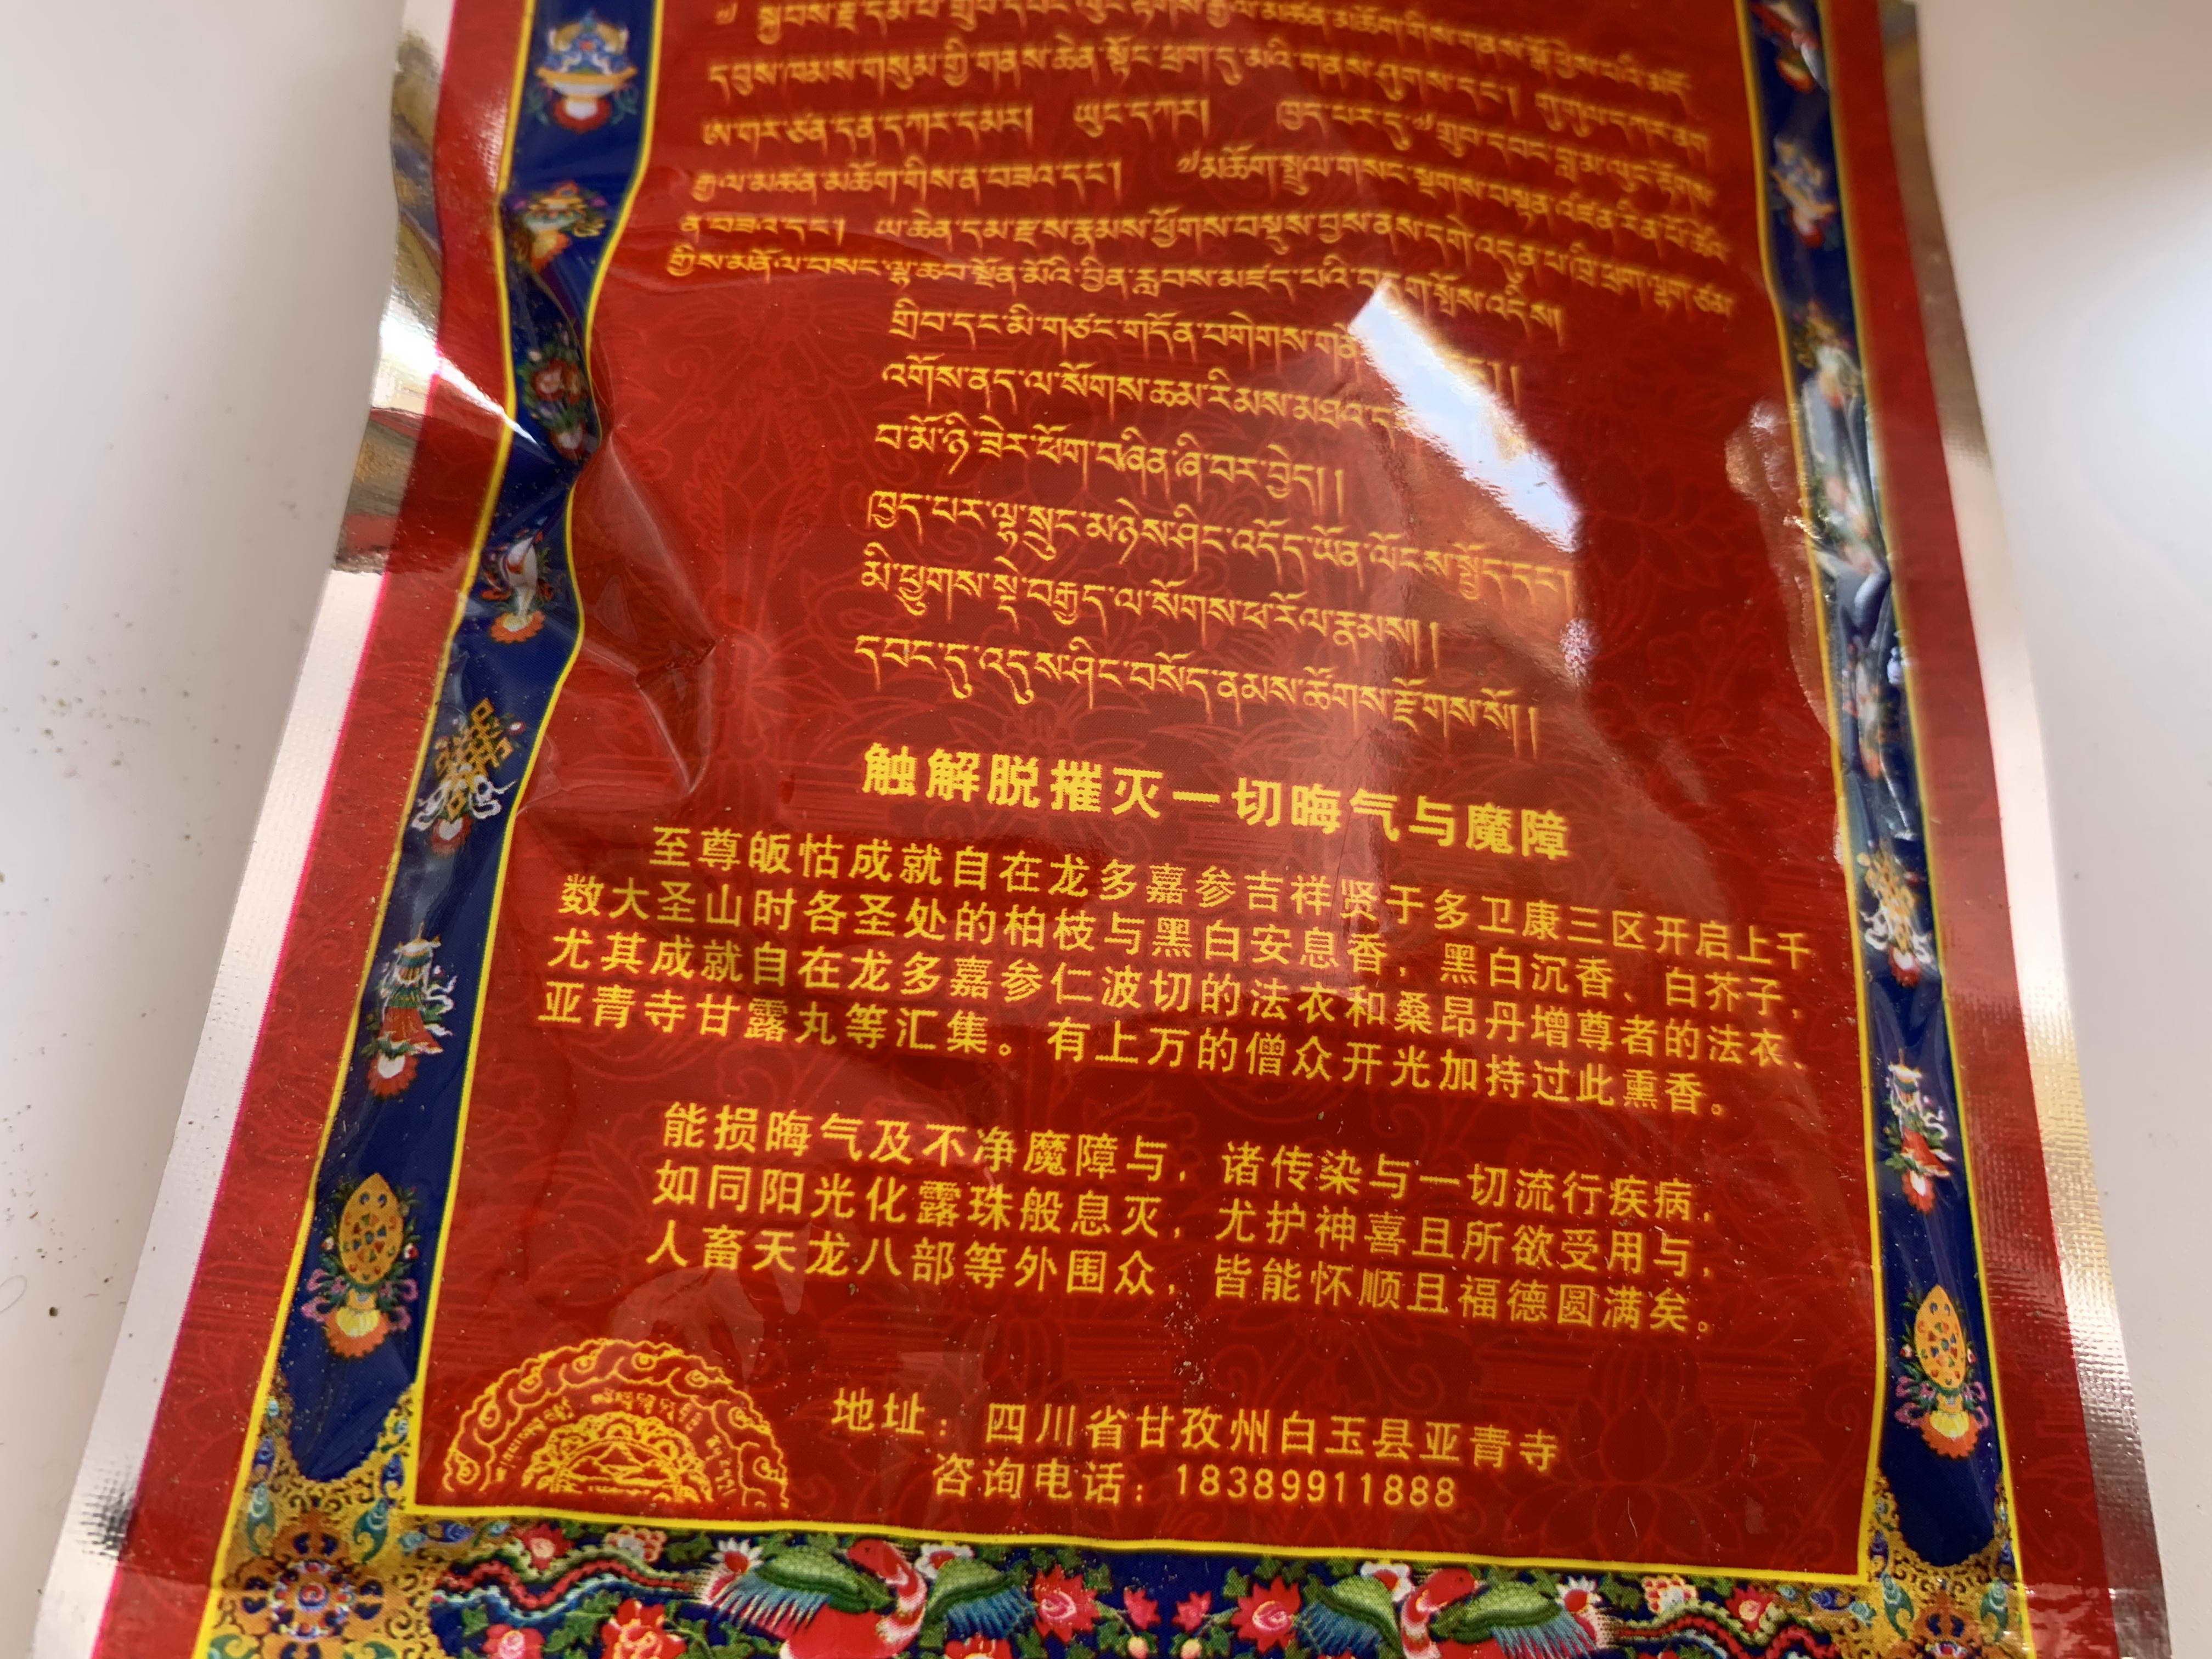 ད་བུས་ཁམས་གསུམ་གྱི་གནས་ཆེན་སྟོང་ཕྲག་དུ་མའི་གནས་ཤུགས་དང་། གུ་གུལ་དཀར་ནག
ཨ་གར་ཙན་དན་དཀར་དམར། ཡུང་དཀར། ཁྱད་པར་དུ་༧གྲུབ་དབང་བླ་མ་ལུང་རྟོགས
རྒྱལ་མཚན་མཆོག་གིས་ན་བཟའ་དང་། ༧མཆོག་སྤྲུལ་གསང་སྔགས་བསྟན་འཛིན་རིན་པོ་ཆེའི
ན་བཟའ་དང་། ཡ་ཆེན་དམ་རྫས་རྣམས་ཕྱོགས་བསྡུས་བྱས་ནས་དགེ་འདུན་པ་ཁྲི་ཕྲག་ལྷག་ཙམ
གྱིས་མནོལ་བསང་ལྷ་ཆབ་སྔོན་མོའི་བྱིན་རླབས་མཛད་པའི་བདུག་སྤོས་འདིས།
གྲིབ་དང་མི་གཙང་གདོན་བགེགས
འགོས་ནད་ལ་སོགས་ཆམ་རིམས་མཐའ་ད
བ་མོ་ཉི་ཟེར་ཕོག་བཞིན་ཞི་བར་བྱེད། །
ཁྱད་པར་ལྷ་སྲུང་མཉེས་ཤིང་འདོད་ཡོན་ལོངས་སྤྱོད་དང་།
མི་ཕྱུགས་སྡེ་བརྒྱད་ལ་སོགས་ཕ་རོལ་རྣམས། །
དབང་དུ་འདུས་ཤིང་བསོད་ནམས་ཚོགས་རྫོགས་སོ། །
触解脱摧灭一切晦气与魔障
至尊皈怙成就自在龙多嘉参吉祥贤于多卫康三区开启上千
数大圣山时各圣处的柏枝与黑白安息香，黑白沉香、白芥子，
尤其成就自在龙多嘉参仁波切的法衣和桑昂丹增尊者的法衣、
亚青寺甘露丸等汇集。有上万的僧众开光加持过此熏香。
能损晦气及不净魔障与，诸传染与一切流行疾病，
如同阳光化露珠般息灭，尤护神喜且所欲受用与，
人畜天龙八部等外围众，皆能怀顺且福德圆满矣。
地址：四川省甘孜州白玉县亚青寺
咨询电话：18389911888